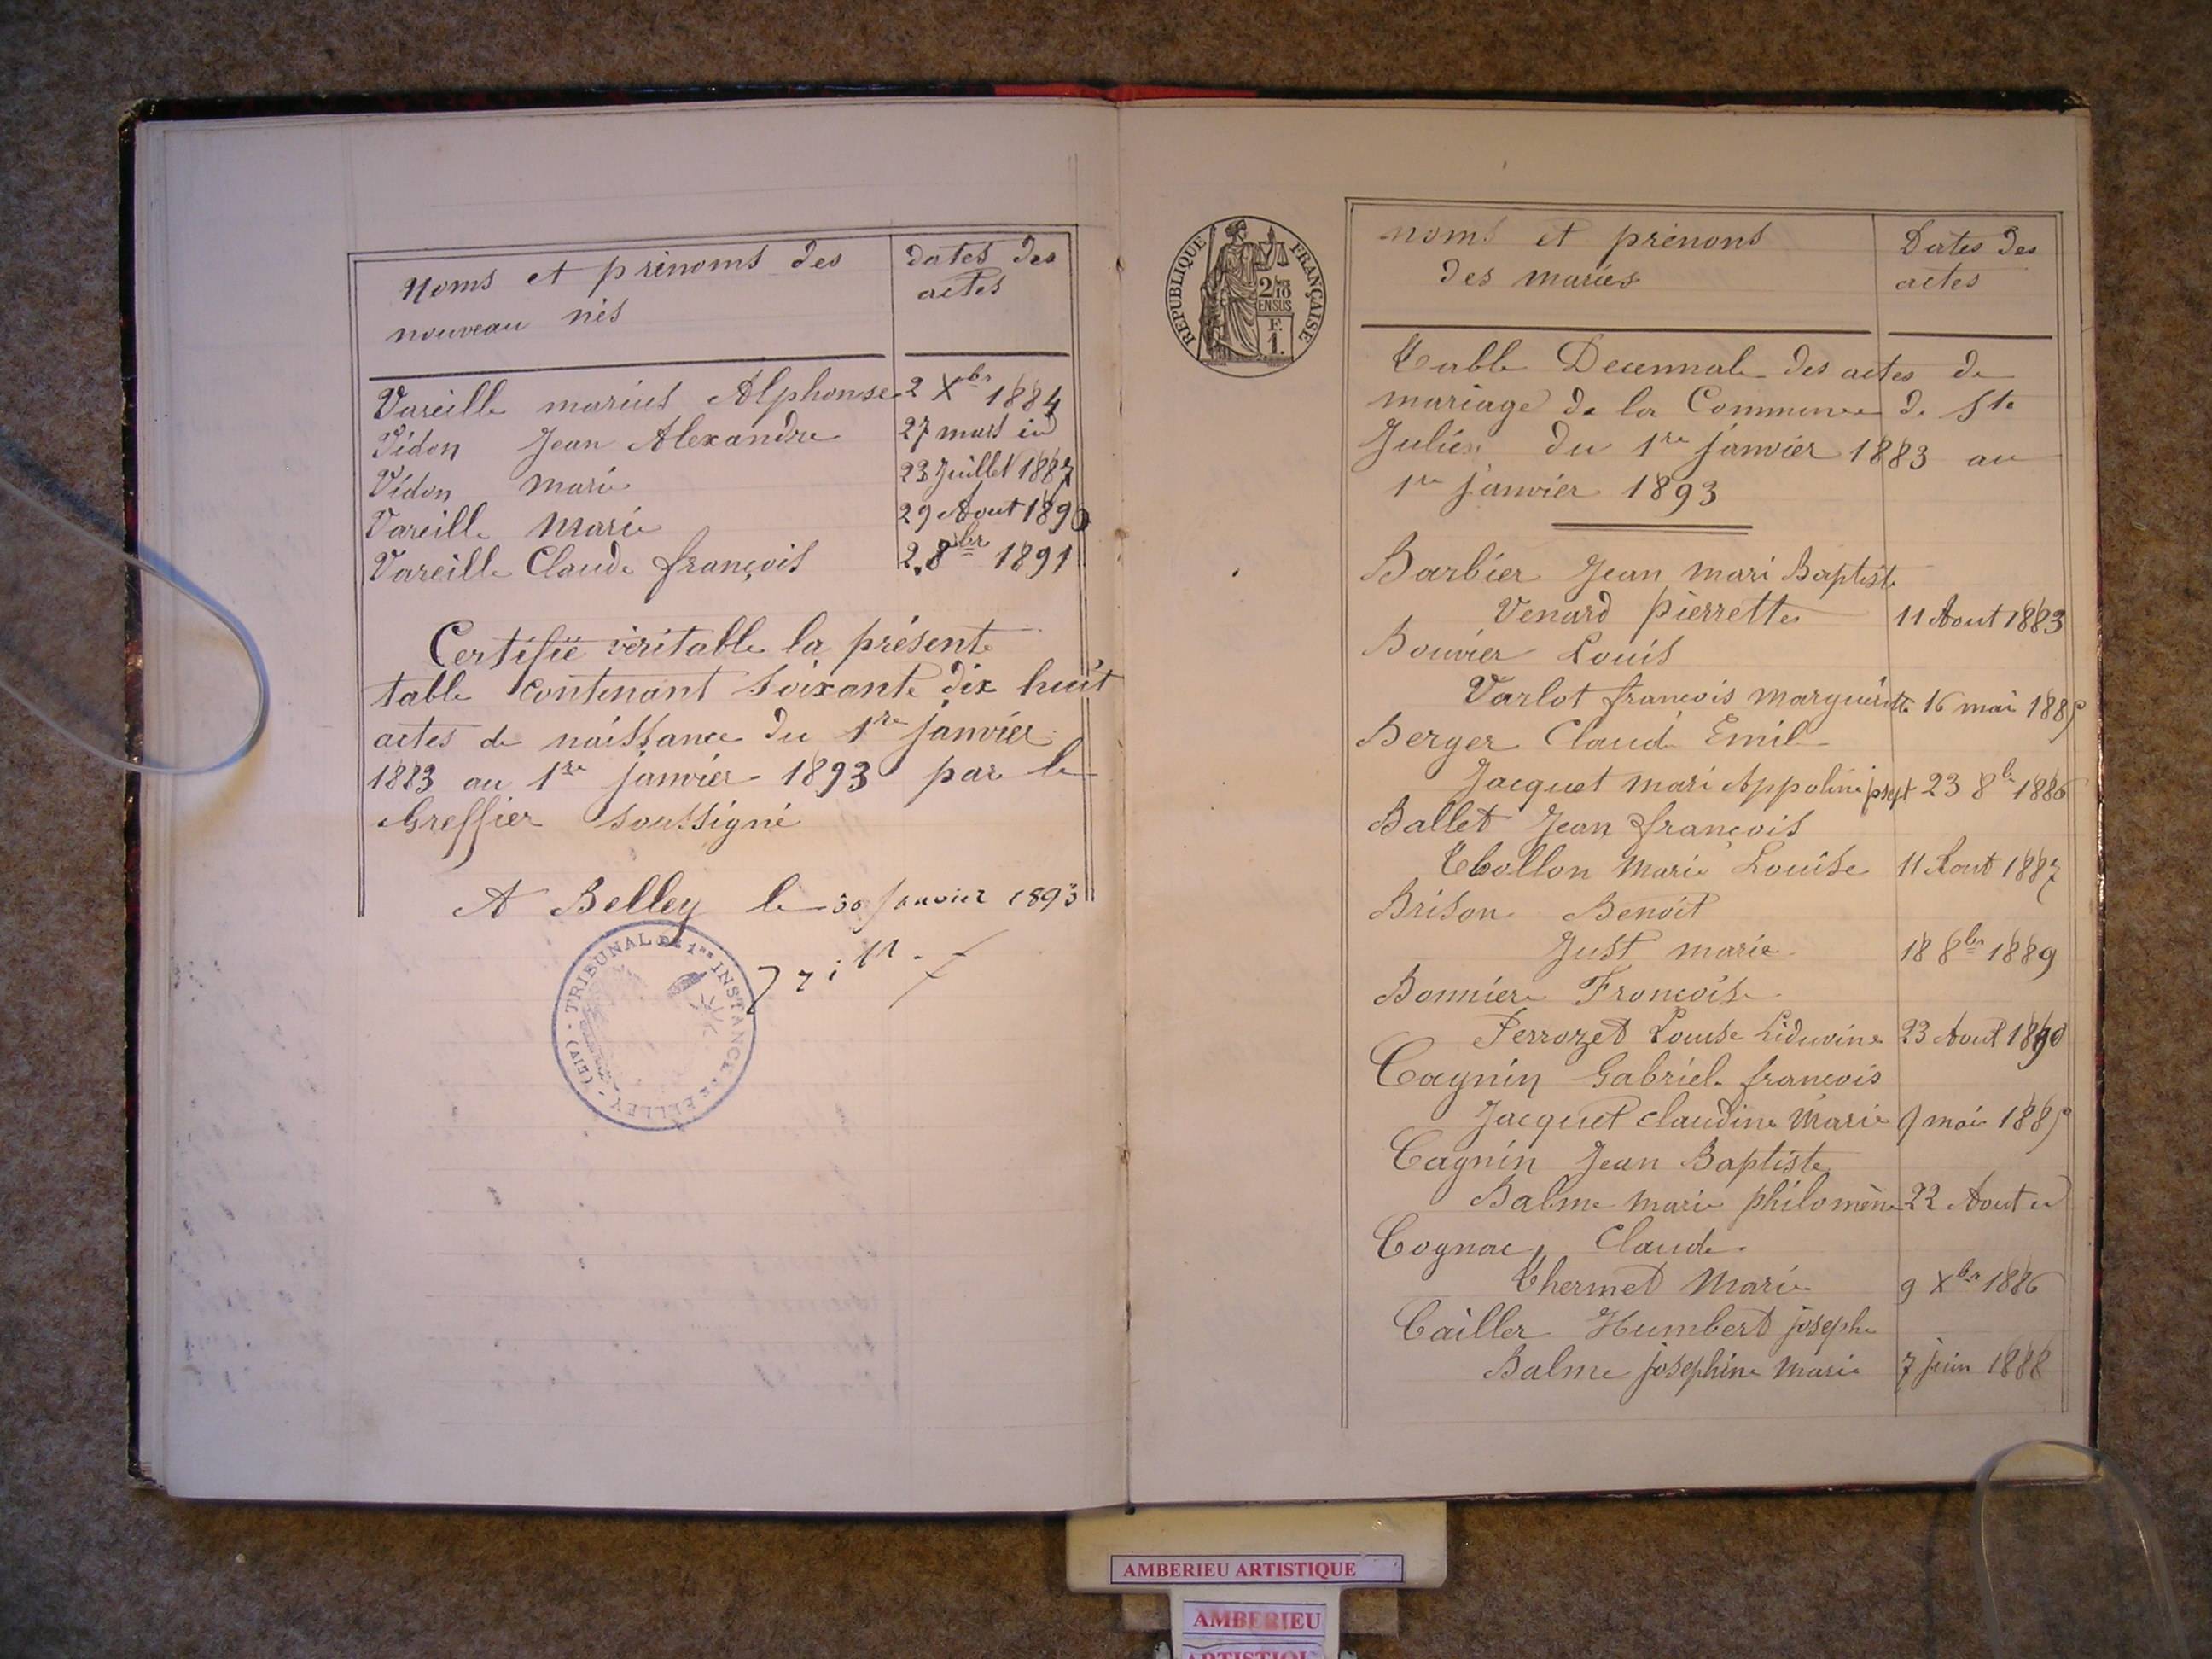 Noms et prénoms des
nouveau nés
dates des
actes
Vareille marius Alphonse 2 Xbr 1884
Vidon Jean Alexandre 27 mars id
Vidon Marie 23 Juillet 1887
Vareille Marie 29 Aout 1890
Vareille Claude françois 2, 8bre 1891
Certifié véritable la présente
table contenant soixante dix huit
actes de naissance du 1re janvier
1883 au 1re janvier 1893 par le
Greffier soussigné
A Belley le 30 Janvier 1893
TRIBUNAL DE 1re INSTANCE DE BELLEY (AIN)
REPUBLIQUE FRANÇAISE
2/10
EN SUS
F.
1.
noms et prénons
des mariés
Dates des
actes
Table Decennale des actes de
mariage de la Commune de Ste
Julie du 1re janvier 1883 au
1re janvier 1893
Barbier Jean Marie Baptiste
Venard pierrette 11 Aout 1883
Bouvier Louis
Varlot françois Marguerite 16 mai 1885
Berger Claude Emile
Jacquet Marie Appoline 23 8bre 1886
Ballet Jean françois
Thollon Marie Louise 11 Aout 1887
Brison Benoit
Just marie 18 8bre 1889
Bonniere Francoise
Perrozet Louise Liduvine 23 Aout 1890
Cagnin Gabriel francois
Jacquet Claudine Marie 9 mai 1885
Cagnin Jean Baptiste
Balme marie philomène 22 Aout id
Cognac Claude
Thermet Marie 9 Xbre 1886
Cailler Humbert joseph
Balme josephine Marie 7 juin 1888
AMBERIEU ARTISTIQUE
AMBERIEU
ARTISTIQUE